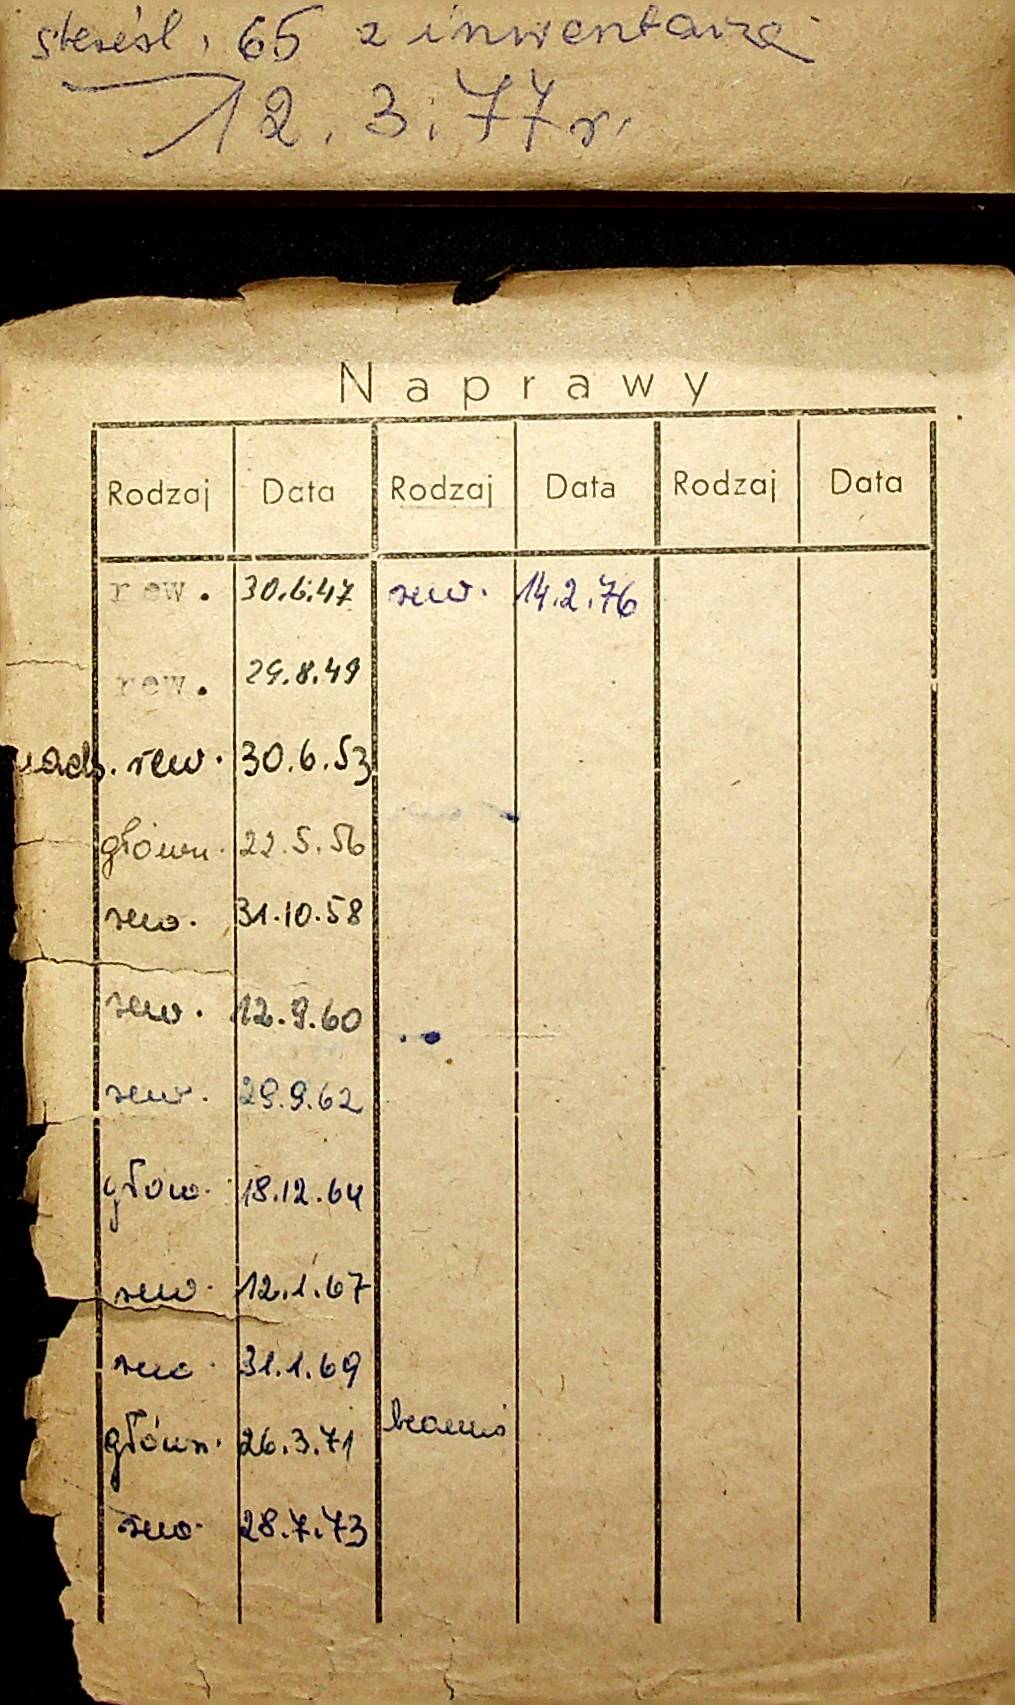 skreśl. 65 z inwentarza
12.3.77 r.
Naprawy
Rodzaj Data Rodzaj Data Rodzaj Data
rew. 30.6.47 rew. 14.2.76
rew. 29.8.49
rew. 30.6.53
główn. 22.5.56
rew. 31.10.58
rew. 12.9.60
rew. 29.9.62
głów. 18.12.64
rew. 12.1.67
rew. 31.1.69
główn. 26.3.71
rew. 28.7.73